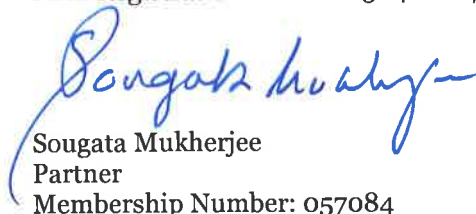 Sougata Mukherjee
Sougata Mukherjee
Partner
Membership Number: 057084